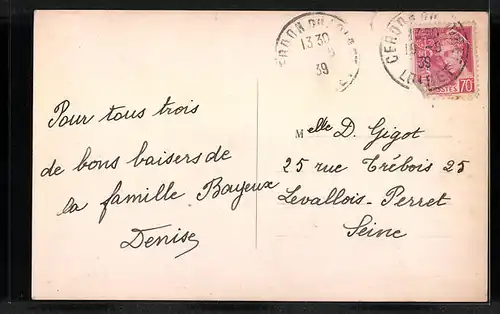 CERDON DU LOIRET
13 30
39
CERDON DU LOIRET
13 30
39
POSTES 70c
Pour tous trois
de bons baisers de
la famille Bayeux
Denise
Melle D. Gigot
25 rue Trébois 25
Levallois-Perret
Seine